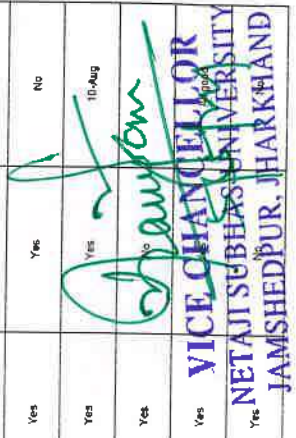 Yes Yes No
Yes Yes 10-Aug
Yes No
Yes
Yes No No
VICE CHANCELLOR
NETAJI SUBHAS UNIVERSITY
JAMSHEDPUR, JHARKHAND